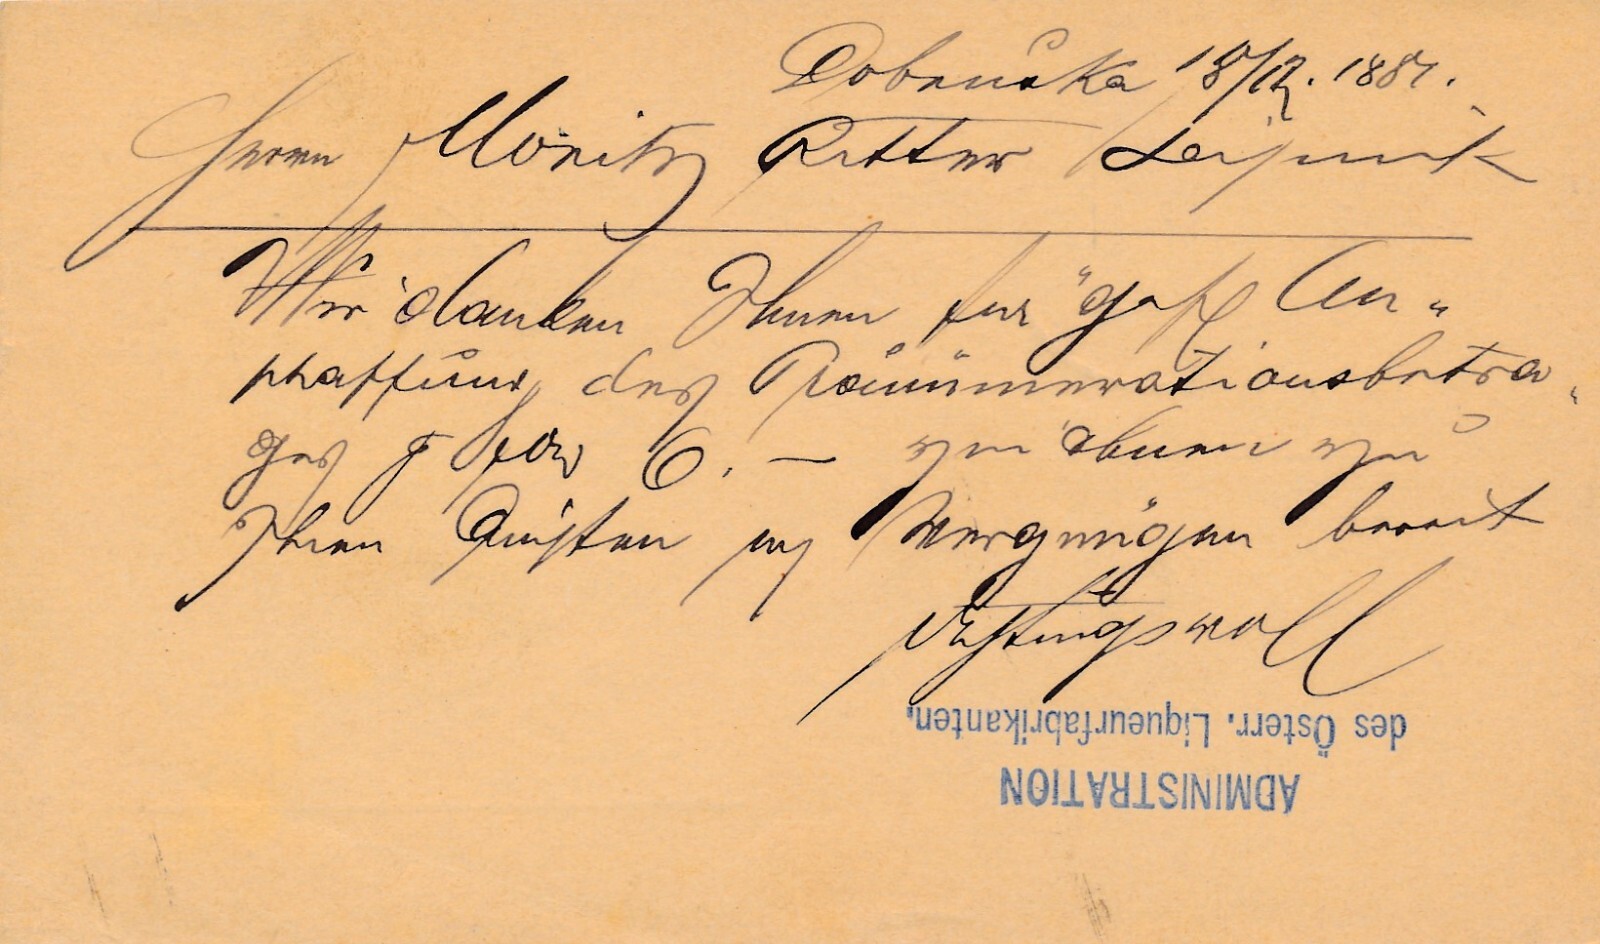 Dobruška 18/12. 1887.
Herrn Moritz Ritter Leipnik
Wir danken Ihnen für gefl An„
schaffung des Pränumerationsbetra„
ges per 6.— zu
Ihren Diensten mit Vergnügen bereit
Achtungsvoll
ADMINISTRATION
des Österr. Liqueurfabrikanten,